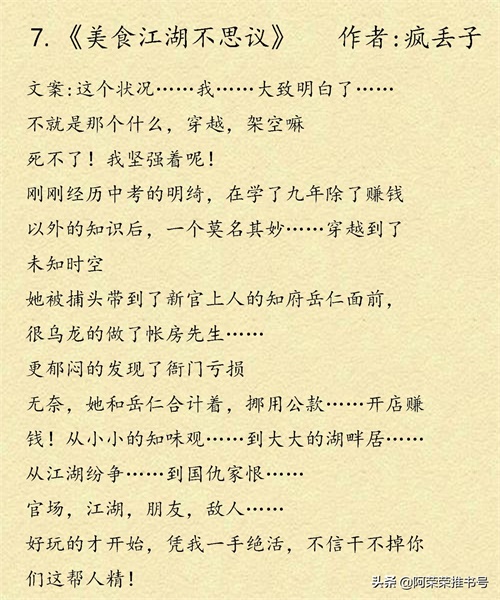 7.《美食江湖不思议》 作者:疯丢子
文案:这个状况……我……大致明白了……
不就是那个什么，穿越，架空嘛
死不了！我坚强着呢！
刚刚经历中考的明绮，在学了九年除了赚钱
以外的知识后，一个莫名其妙……穿越到了
未知时空
她被捕头带到了新官上人的知府岳仁面前，
很乌龙的做了帐房先生……
更郁闷的发现了衙门亏损
无奈，她和岳仁合计着，挪用公款……开店赚
钱！从小小的知味观……到大大的湖畔居……
从江湖纷争……到国仇家恨……
官场，江湖，朋友，敌人……
好玩的才开始，凭我一手绝活，不信干不掉你
们这帮人精！
头条 @阿荣荣推书号